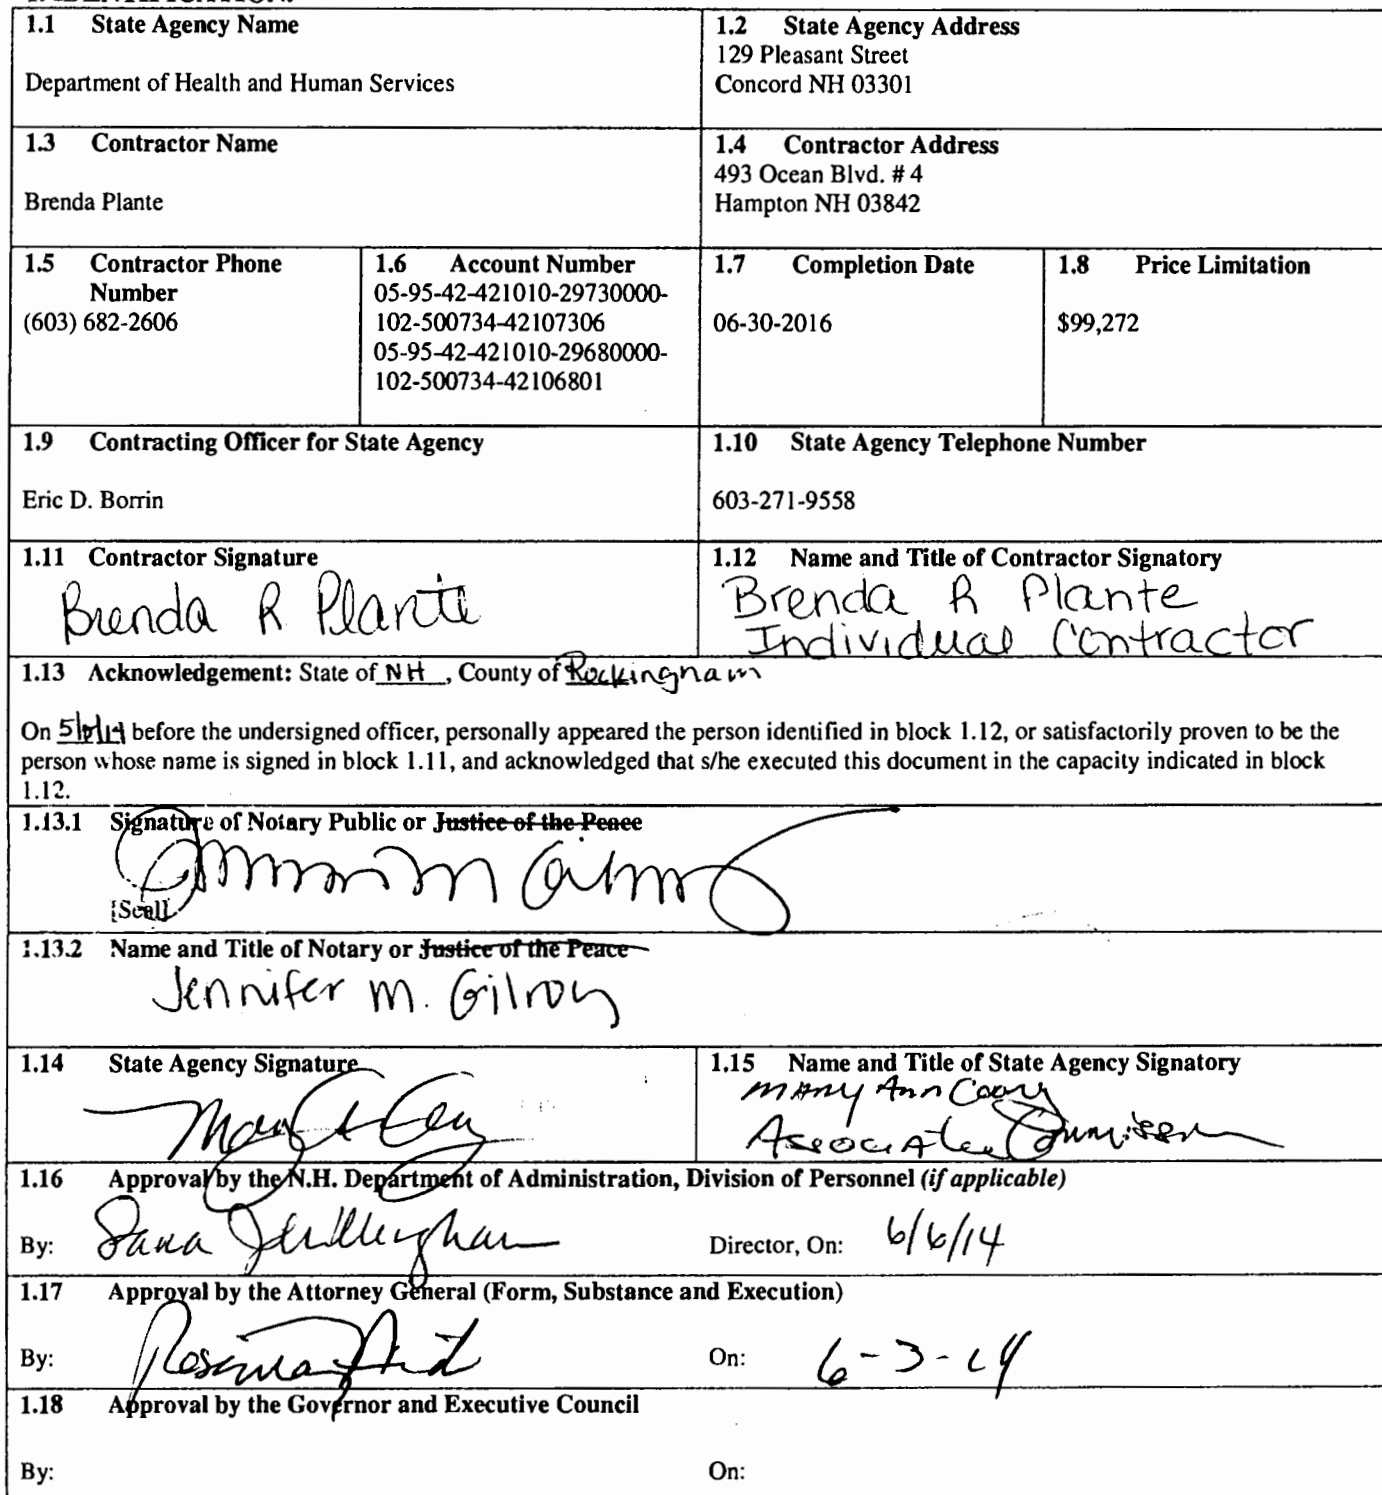 1.1 State Agency Name
Department of Health and Human Services
1.2 State Agency Address
129 Pleasant Street
Concord NH 03301
1.3 Contractor Name
Brenda Plante
1.4 Contractor Address
493 Ocean Blvd. # 4
Hampton NH 03842
1.5 Contractor Phone
Number
(603) 682-2606
1.6 Account Number
05-95-42-421010-29730000-
102-500734-42107306
05-95-42-421010-29680000-
102-500734-42106801
1.7 Completion Date
06-30-2016
1.8 Price Limitation
$99,272
1.9 Contracting Officer for State Agency
Eric D. Borrin
1.10 State Agency Telephone Number
603-271-9558
1.11 Contractor Signature
Brenda R Plante
1.12 Name and Title of Contractor Signatory
Brenda R Plante
Individual Contractor
1.13 Acknowledgement: State of NH, County of Rockingham
On before the undersigned officer, personally appeared the person identified in block 1.12, or satisfactorily proven to be the
person whose name is signed in block 1.11, and acknowledged that s/he executed this document in the capacity indicated in block
1.12.
1.13.1 Signature of Notary Public or Justice of the Peace
[Seal]
1.13.2 Name and Title of Notary or Justice of the Peace
Jennifer M. Gilroy
1.14 State Agency Signature
1.15 Name and Title of State Agency Signatory
Mary Ann Cooney
Associate Commissioner
1.16 Approval by the N.H. Department of Administration, Division of Personnel (if applicable)
By: Director, On: 6/6/14
1.17 Approval by the Attorney General (Form, Substance and Execution)
By: On: 6-3-14
1.18 Approval by the Governor and Executive Council
By: On: